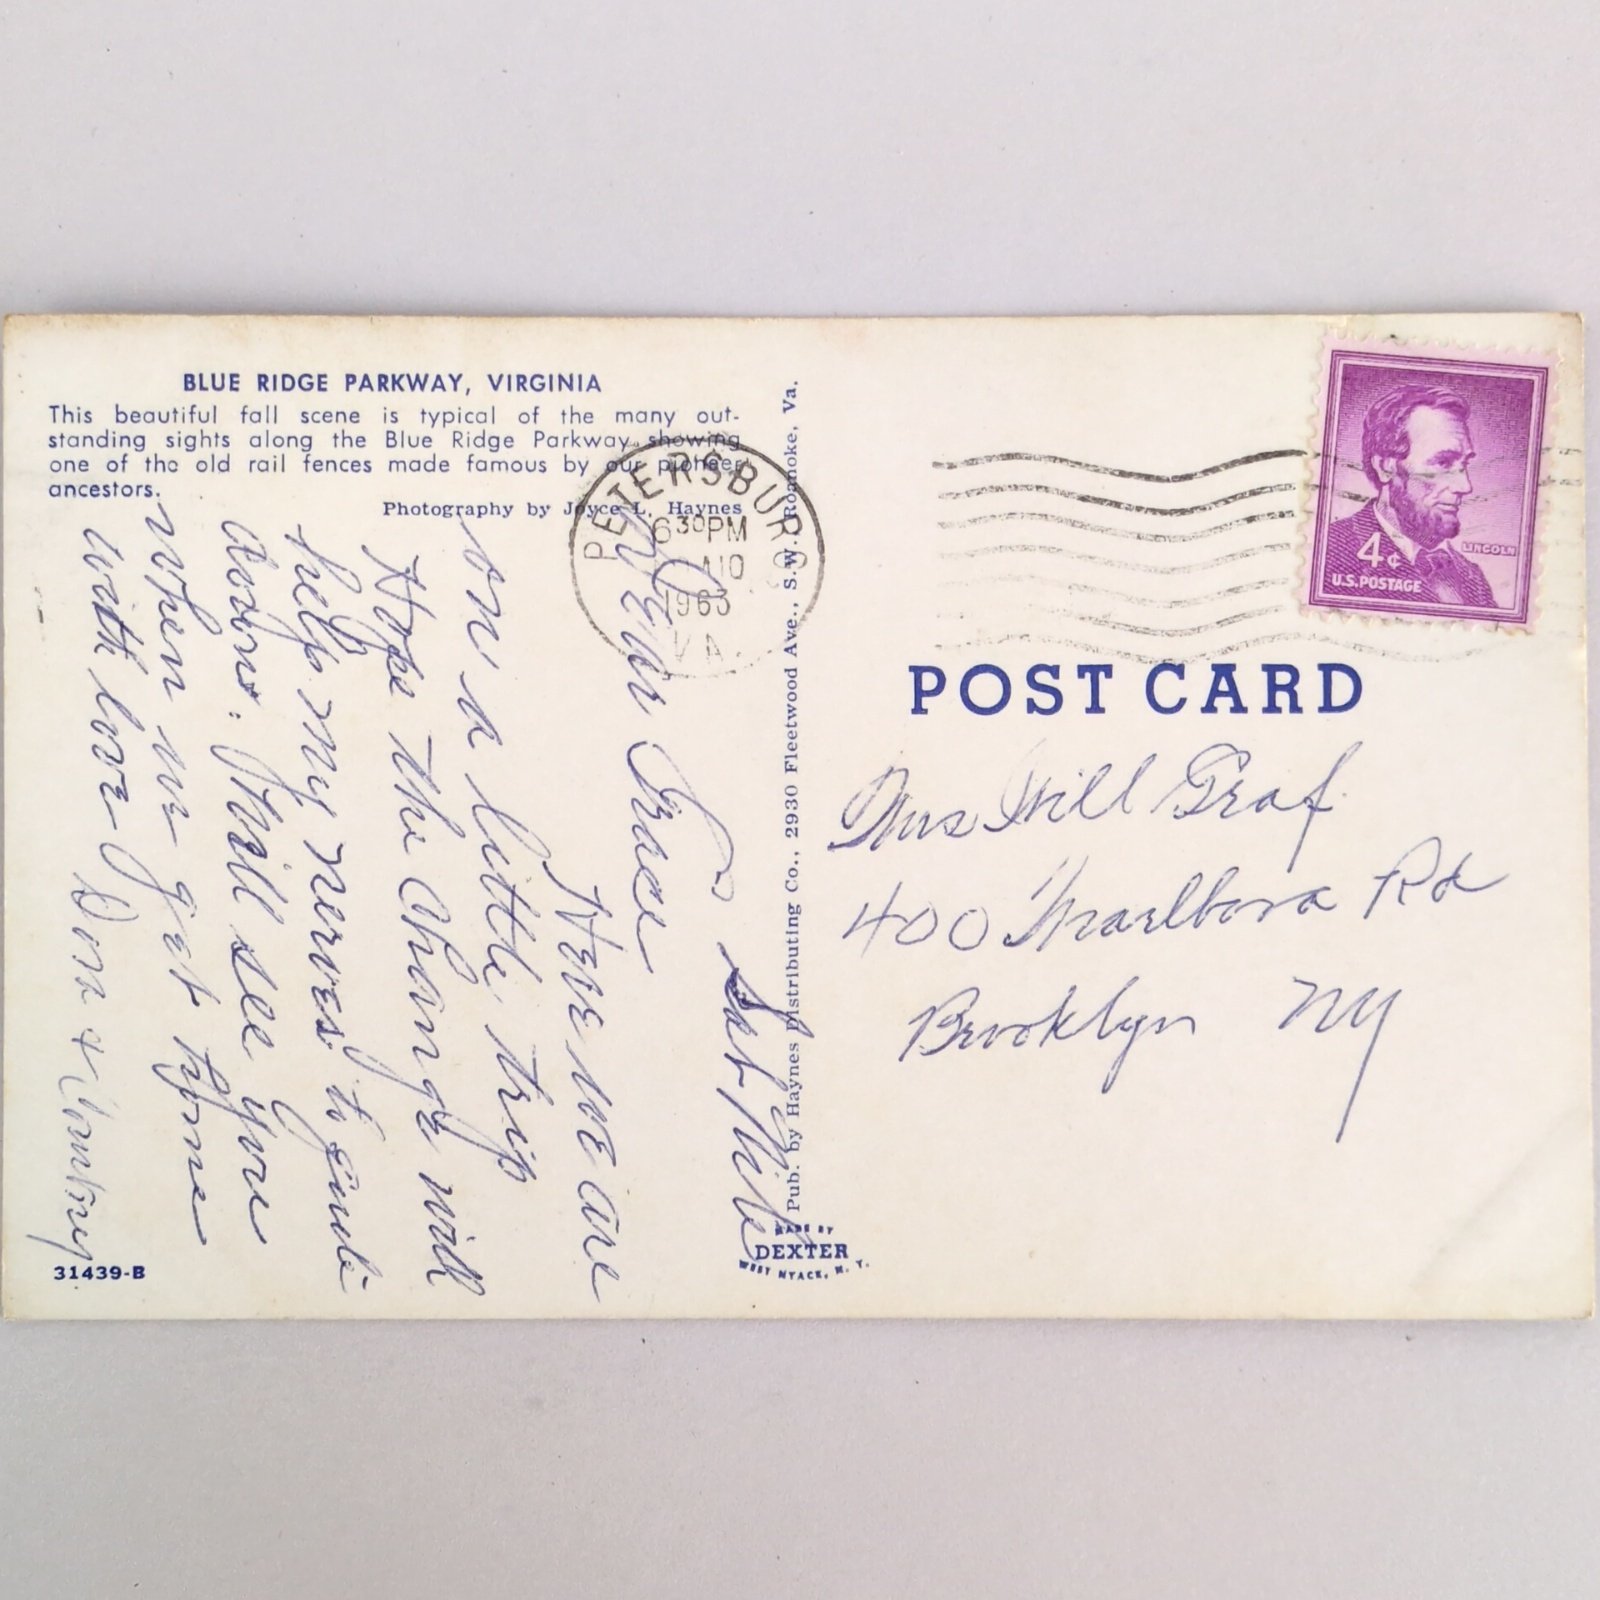 BLUE RIDGE PARKWAY, VIRGINIA
This beautiful fall scene is typical of the many out-
standing sights along the Blue Ridge Parkway, showing
one of the old rail fences made famous by our pioneer
ancestors.
Photography by Joyce L. Haynes
Sat Nite
Dear Grace
Here we are
on a little trip
Hope the change will
help my nerves to quit
down. Will see you
when we get home
with love Dora &
31439-B
Pub. by Haynes Distributing Co., 2930 Fleetwood Ave., S.W. Roanoke, Va.
MADE BY
DEXTER
WEST NYACK, N. Y.
PETERSBURG
6 30 PM
10
1963
VA.
4¢
LINCOLN
U.S. POSTAGE
POST CARD
Mrs Will Graf
400 Marlboro Rd
Brooklyn NY